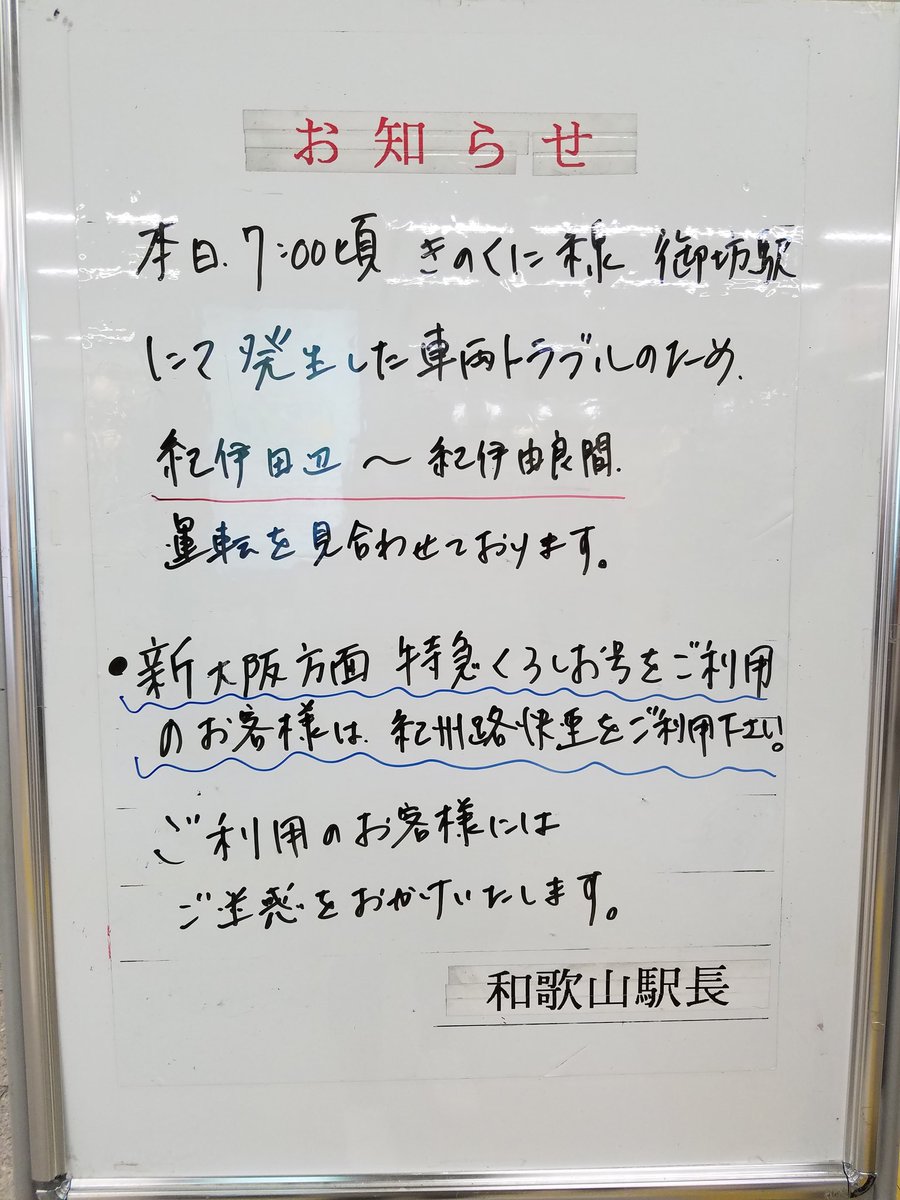 お知らせ
本日、7:00頃 きのくに線 御坊駅
にて発生した車両トラブルのため、
紀伊田辺～紀伊由良間、
運転を見合わせております。
●新大阪方面 特急くろしお号をご利用
のお客様は、紀州路快速をご利用下さい。
ご利用のお客様には
ご迷惑をおかけいたします。
和歌山駅長